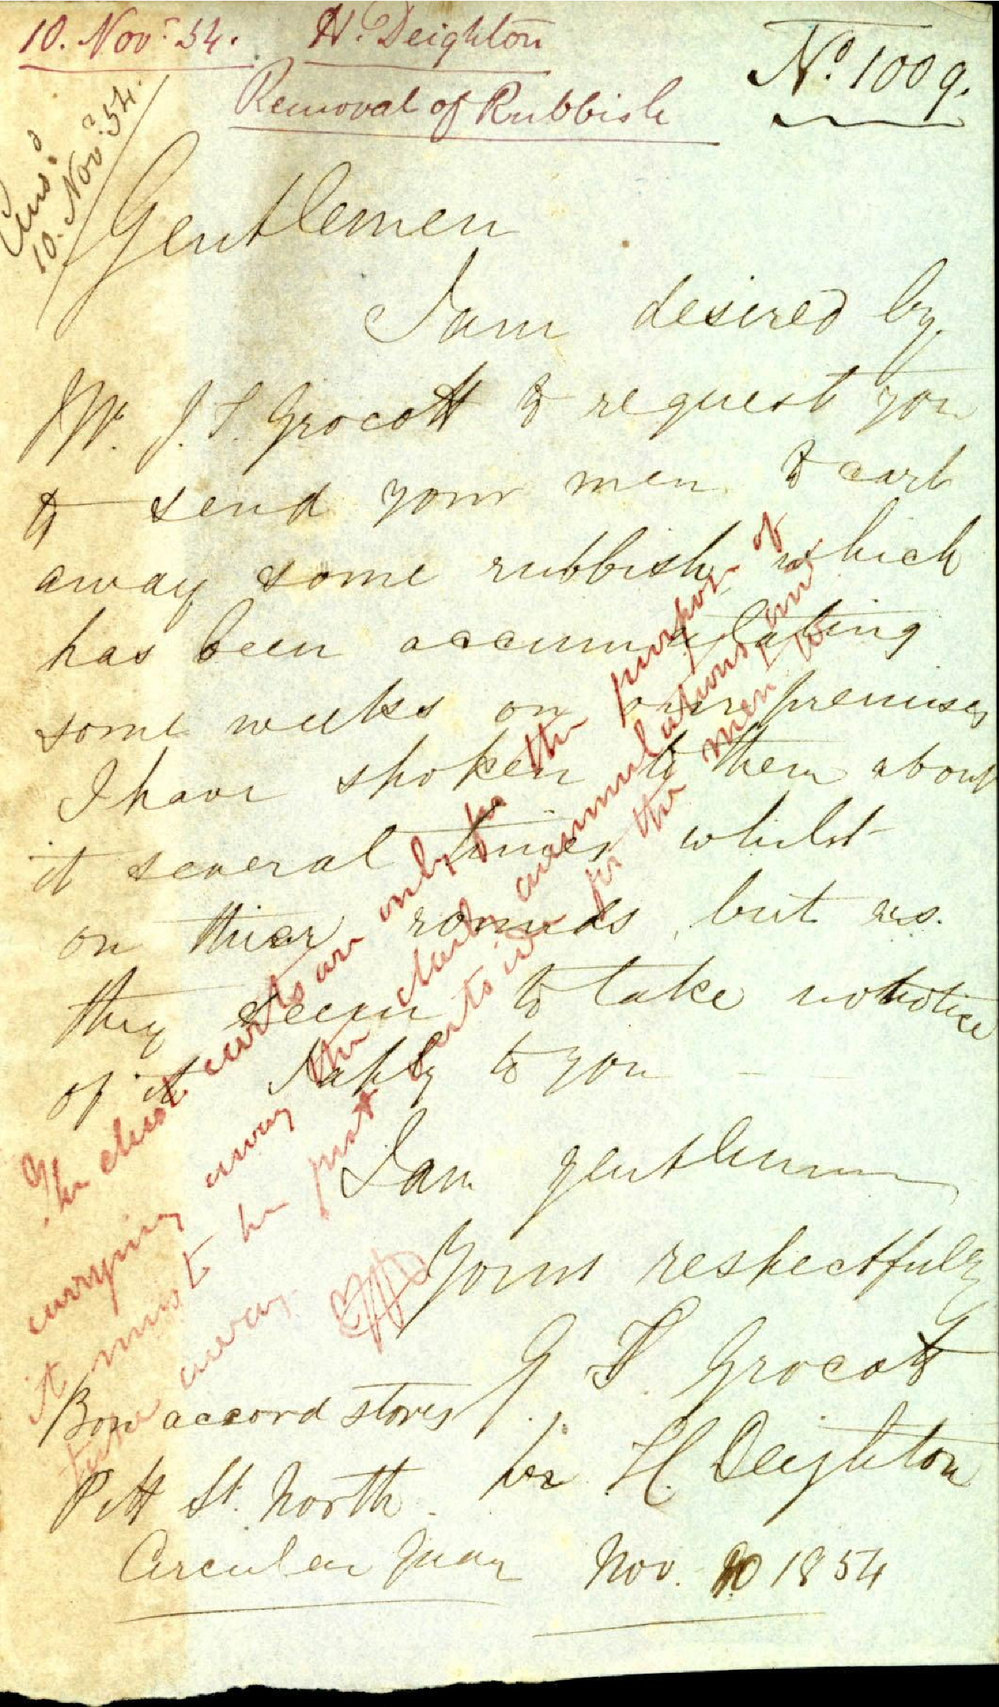 10. Nov.r 54. H. Deighton
Removal of Rubbish
No. 1009.
Ansd.
10. Nov.r 54.
Gentlemen
I am desired by
Mr. J. S. Grocott to request you
to send your men to cart
away some rubbish which
has been accumulating
some weeks on our premises
I have spoken to them about
it several times whilst
on thier rounds, but as
they seem to take no notice
of it I aply to you —
I am gentlemen
Yours respectfuly
G F. Grocott
per H. Deighton
Bon accord stores
Pitt St. North.
Circular Quay
Nov. 10 1854
The dust carts are only for the purpose of
carrying away the daily accumulations, and
it must be put into for the men to
take away.